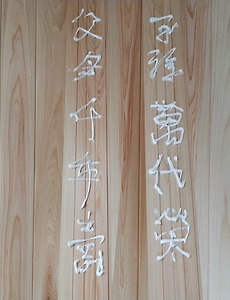 子孫萬代榮
父母千年壽